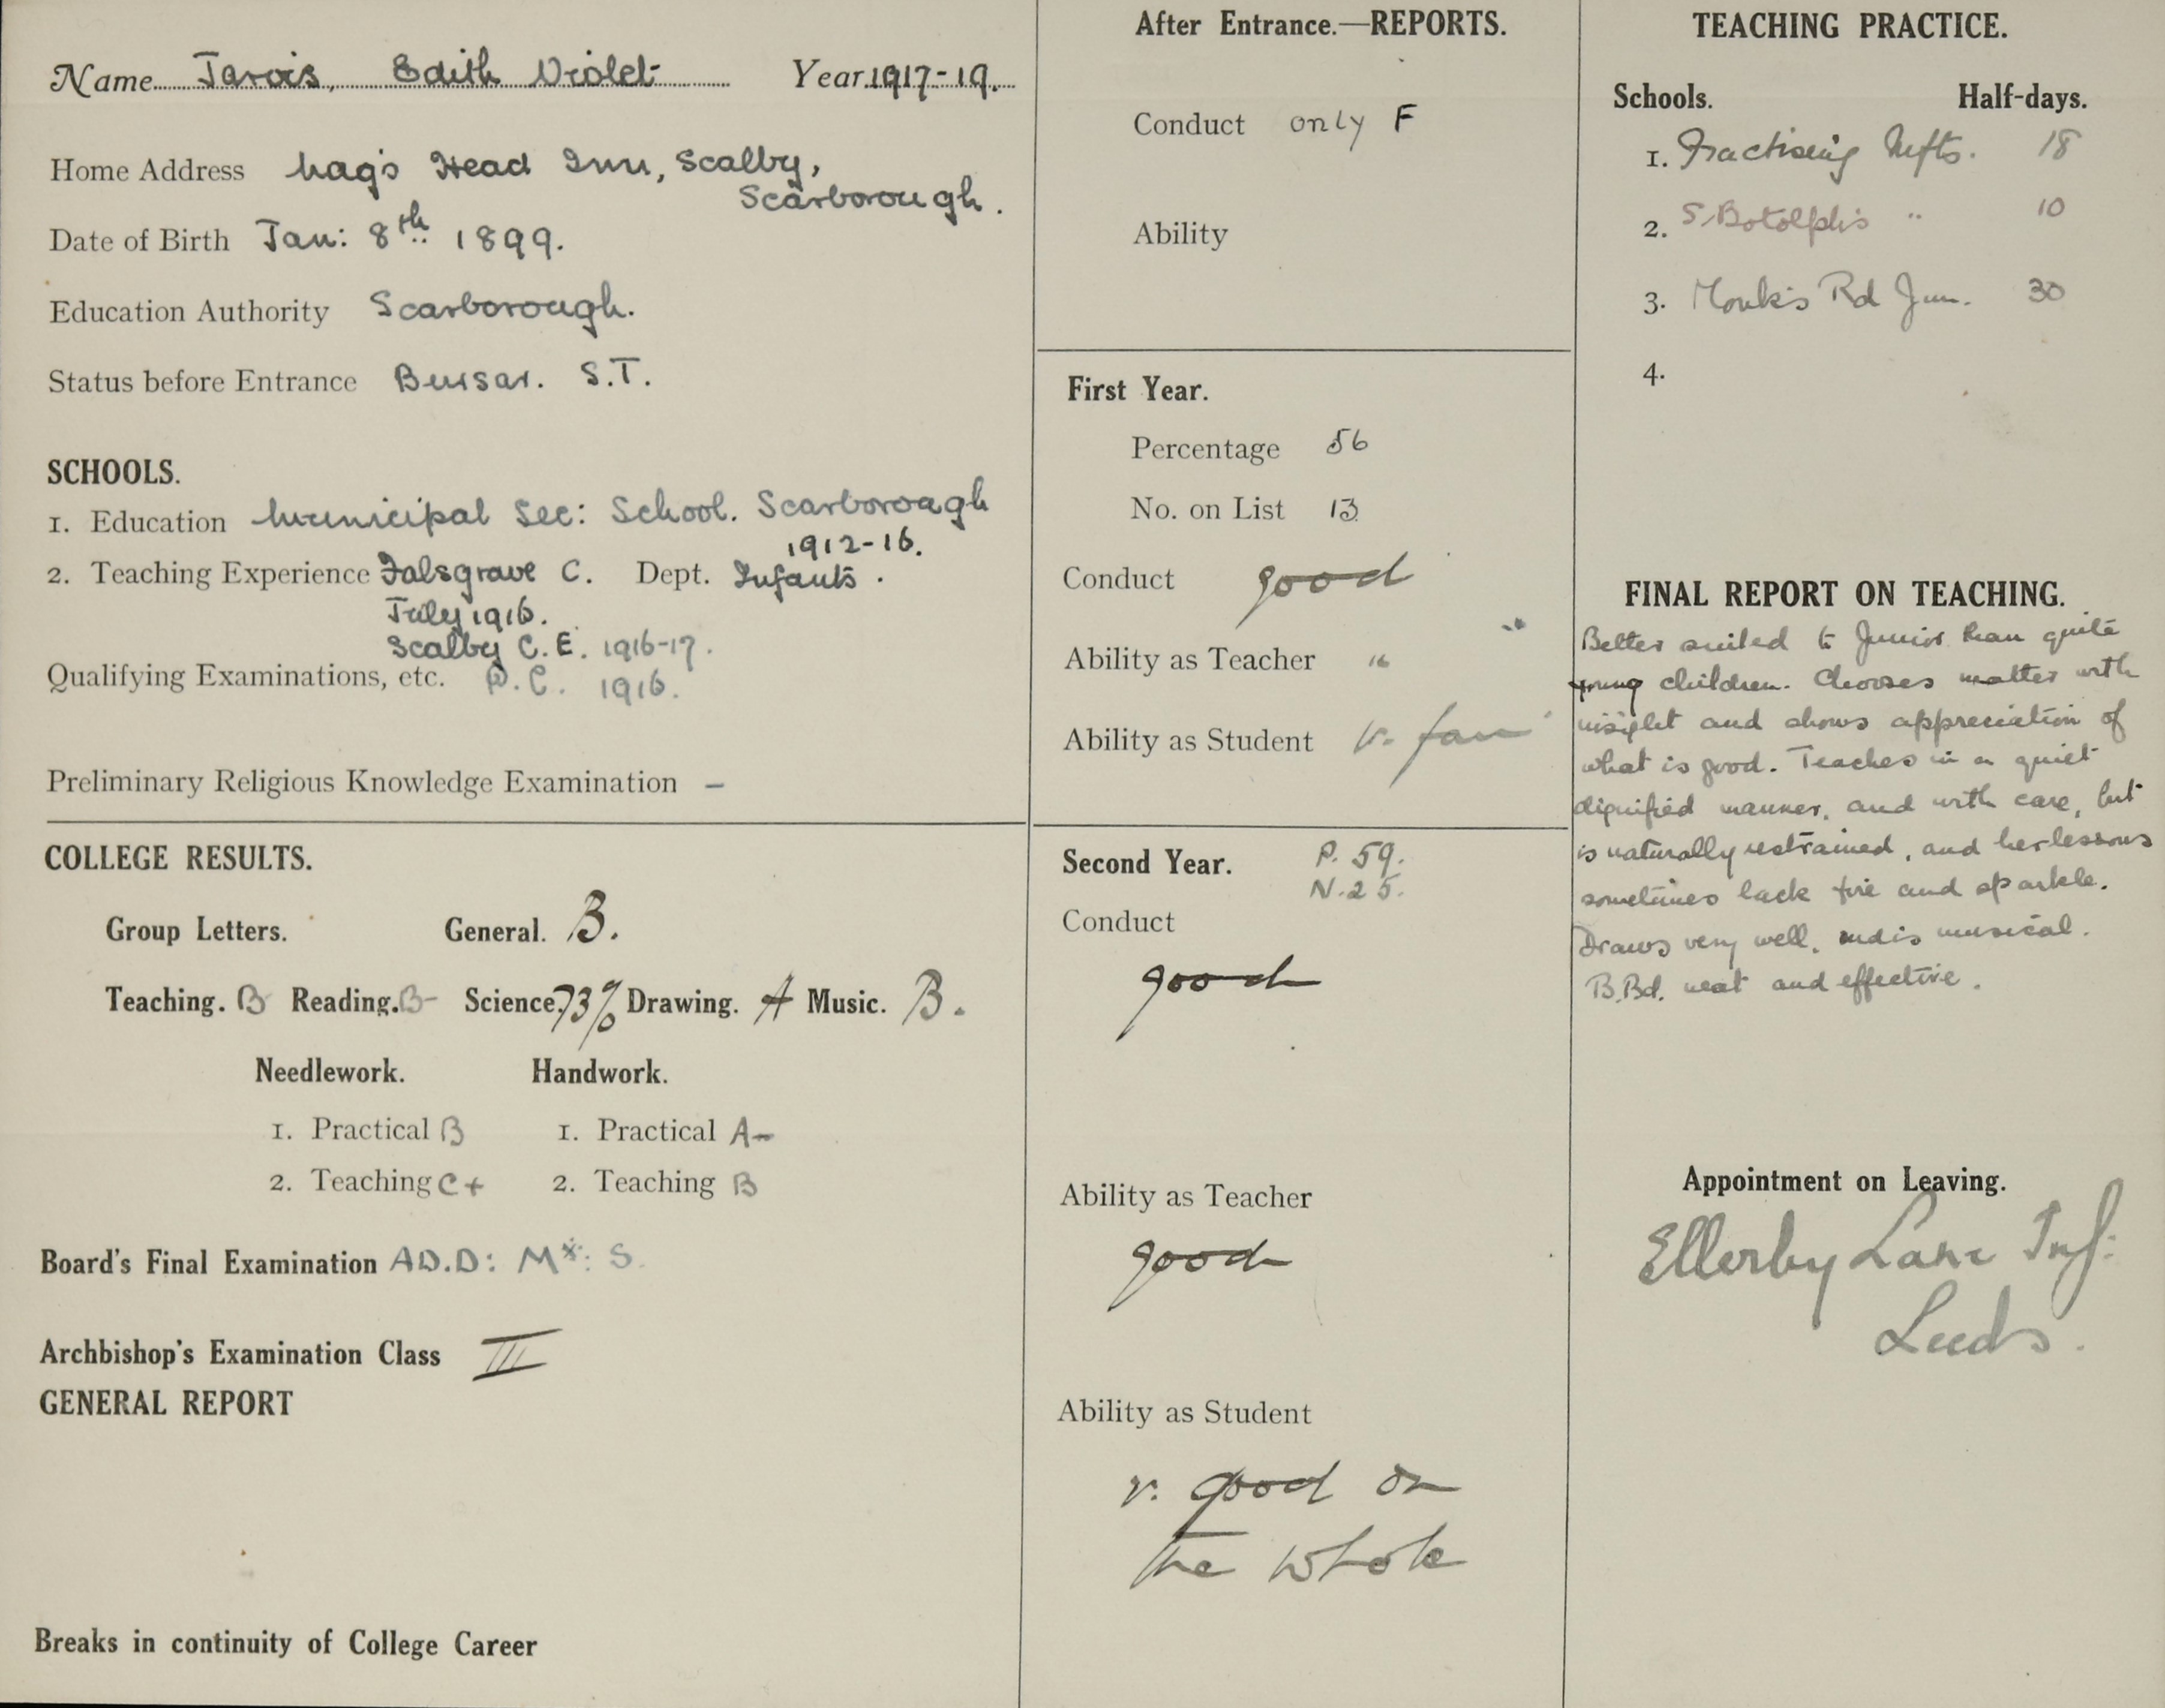 Name Jarvis, Edith Violet Year 1917-19.
Home Address Nag's Head Inn, Scalby,
Scarborough.
Date of Birth Jan: 8th 1899.
Education Authority Scarborough.
Status before Entrance Bursar. S.T.
SCHOOLS.
1. Education Municipal Sec: School. Scarborough
1912-16.
2. Teaching Experience Falsgrave C. Dept. Infants.
July 1916.
Scalby C.E. 1916-17.
Qualifying Examinations, etc. P.C. 1916.
Preliminary Religious Knowledge Examination –
COLLEGE RESULTS.
Group Letters. General. B.
Teaching. B Reading. B- Science. 73% Drawing. A Music. B.
Needlework. Handwork.
1. Practical B 1. Practical A-
2. Teaching C+ 2. Teaching B
Board's Final Examination AD.D: M*: S.
Archbishop's Examination Class III
GENERAL REPORT
Breaks in continuity of College Career
After Entrance.—REPORTS.
Conduct only F
Ability
First Year.
Percentage 56
No. on List 13
Conduct good
Ability as Teacher "
Ability as Student v. fair
Second Year. P. 59.
N. 25.
Conduct
good
Ability as Teacher
good
Ability as Student
v. good on
the whole
TEACHING PRACTICE.
Schools. Half-days.
1. Practising Infts. 18
2. S. Botolph's " 10
3. Monk's Rd Jun. 30
4.
FINAL REPORT ON TEACHING.
Better suited to Junior than quite
young children. Chooses matter with
insight and shows appreciation of
what is good. Teaches in a quiet
dignified manner, and with care, but
is naturally restrained, and her lessons
sometimes lack fire and sparkle.
Draws very well, and is musical.
B.Bd. neat and effective.
Appointment on Leaving.
Ellerby Lane Inf:
Leeds.